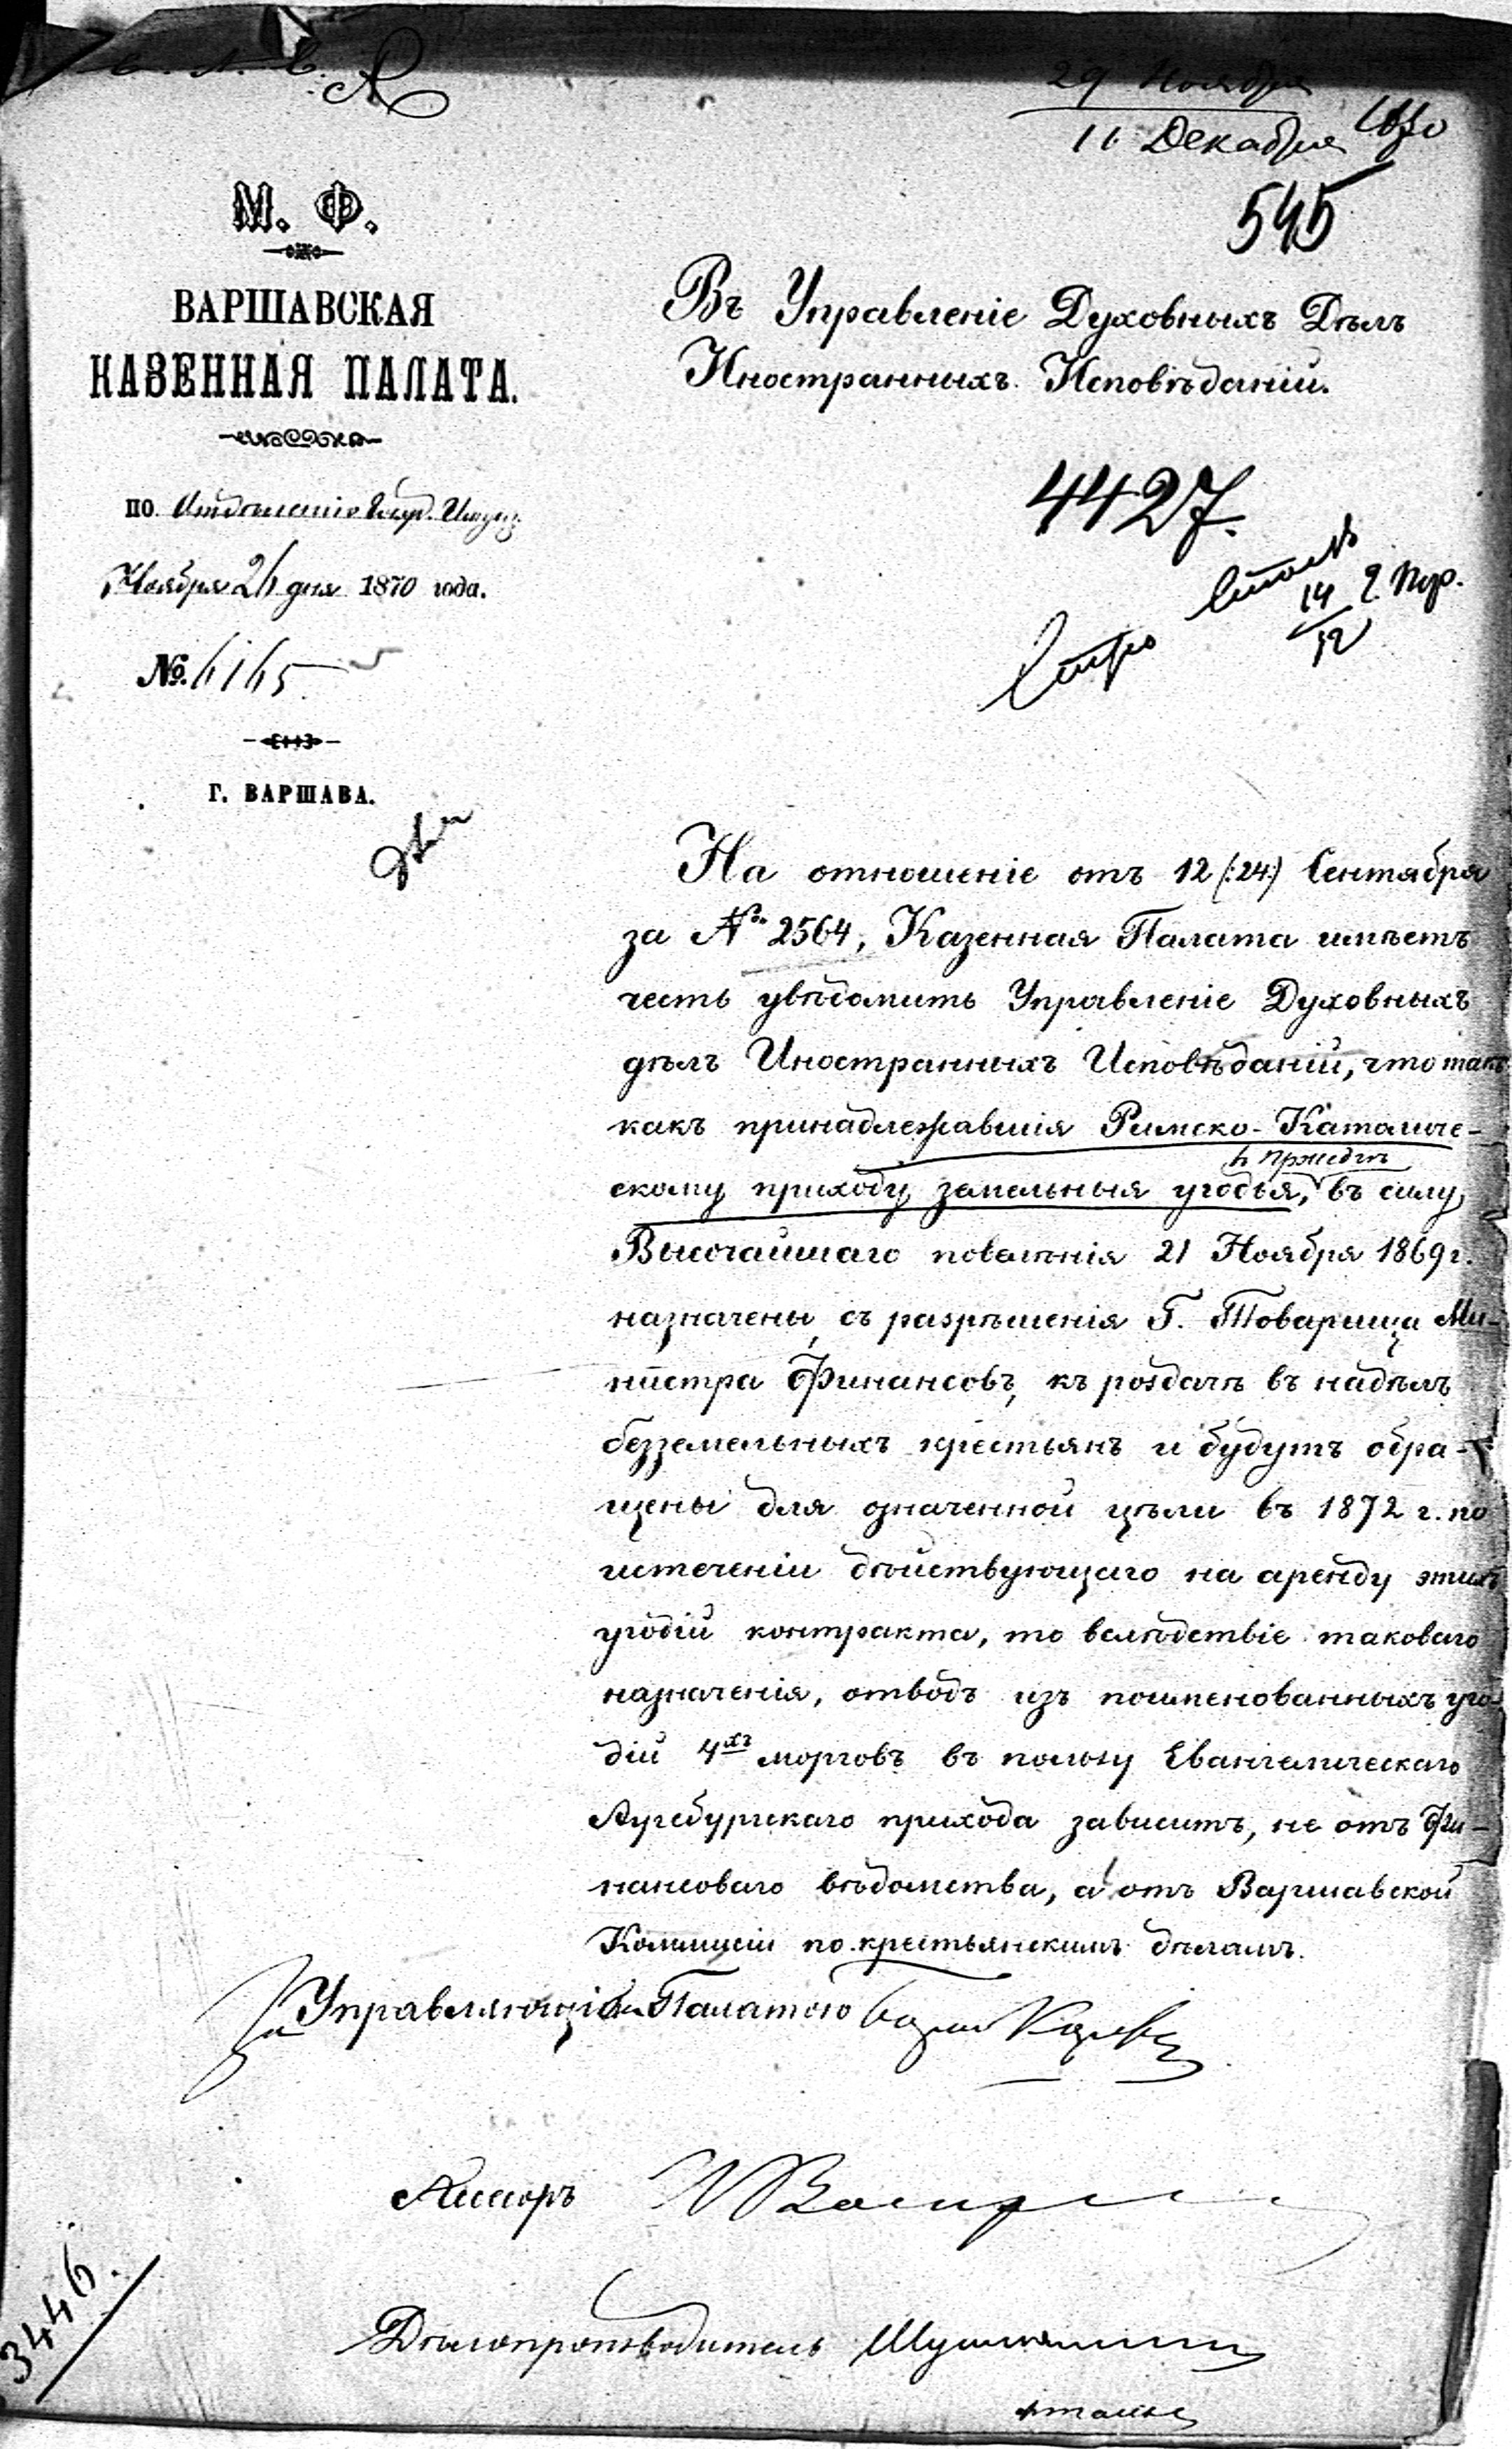 29 Ноября
11 Декабря 1870
545
М. Ф.
ВАРШАВСКАЯ
КАЗЕННАЯ ПАЛАТА.
ПО Отдѣленію Госуд. Имущ.
Ноября 26 дня 1870 года.
№ 6165
Г. ВАРШАВА.
Въ Управленіе Духовныхъ Дѣлъ
Иностранныхъ Исповѣданій.
4427.
14
12
На отношеніе отъ 12 (:24:) Сентября
за № 2564, Казенная Палата имѣетъ
честь увѣдомить Управленіе Духовныхъ
дѣлъ Иностранныхъ Исповѣданій, что такъ
какъ принадлежавшія Римско-Католиче-
скому приходу земельныя угодья, въ силу
Высочайшаго повелѣнія 21 Ноября 1869 г.
назначены, съ разрѣшенія Г. Товарища Ми-
нистра Финансовъ, къ роздачѣ въ надѣлъ
безземельныхъ крестьянъ и будутъ обра-
щены для означенной цѣли въ 1872 г. по
истеченіи дѣйствующаго на аренду этихъ
угодій контракта, то вслѣдствіе таковаго
назначенія, отводъ изъ поименованныхъ уго-
дій 4хъ морговъ въ пользу Евангелическаго
Аугсбургскаго прихода зависитъ, не отъ Фи-
нансоваго вѣдомства, а отъ Варшавской
Коммисіи по крестьянскимъ дѣламъ.
За Управляющій Палатою
Ассесоръ
Дѣлопроизводитель
3446.